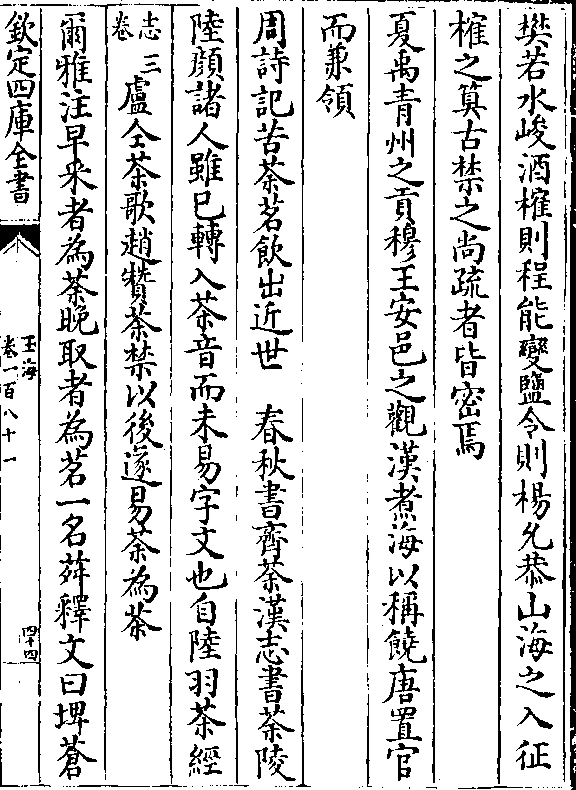 樊若水峻酒榷則程能變鹽令則楊允恭山海之入征
榷之筭古禁之尚疏者皆密焉
夏禹青州之貢穆王安邑之觀漢煮海以稱饒唐置官
而兼領
周詩記苦荼茗飲出近世　春秋書齊荼漢志書荼陵
陸顔諸人雖已轉入茶音而未易字文也自陸羽茶經
志三卷盧仝茶歌趙贊茶禁以後遂易荼為茶
爾雅注早采者為茶晚取者為茗一名荈釋文曰埤蒼
欽定四庫全書
玉海
卷一百八十一
四十四